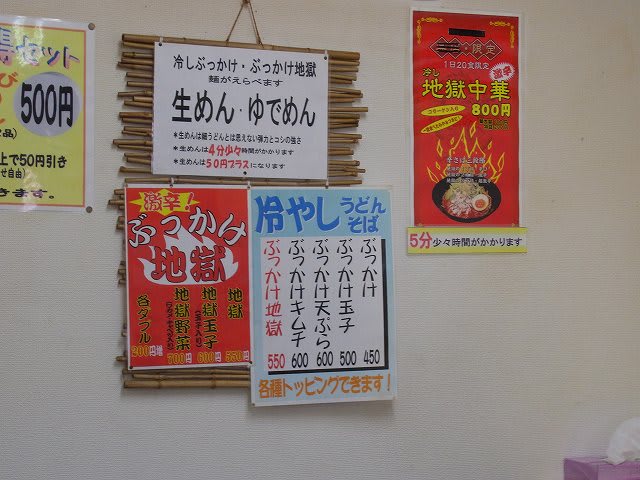 得セット
500円
上で50円引き
きます。
冷しぶっかけ・ぶっかけ地獄
麺がえらべます
生めん・ゆでめん
*生めんは細うどんとは思えない弾力とコシの強さ
*生めんは4分少々時間がかかります
*生めんは50円プラスになります
激辛!
ぶっかけ
地獄
地獄 550円
地獄玉子(玉子入り) 600円
地獄野菜 700円
各ダブル 200円増
冷やしうどんそば
ぶっかけ 450
ぶっかけ玉子 500
ぶっかけ天ぷら 600
ぶっかけキムチ 600
ぶっかけ地獄 550
各種トッピングできます!
限定
1日20食限定
冷し
激辛
地獄中華
800円
辛さは三段階
5分少々時間がかかります